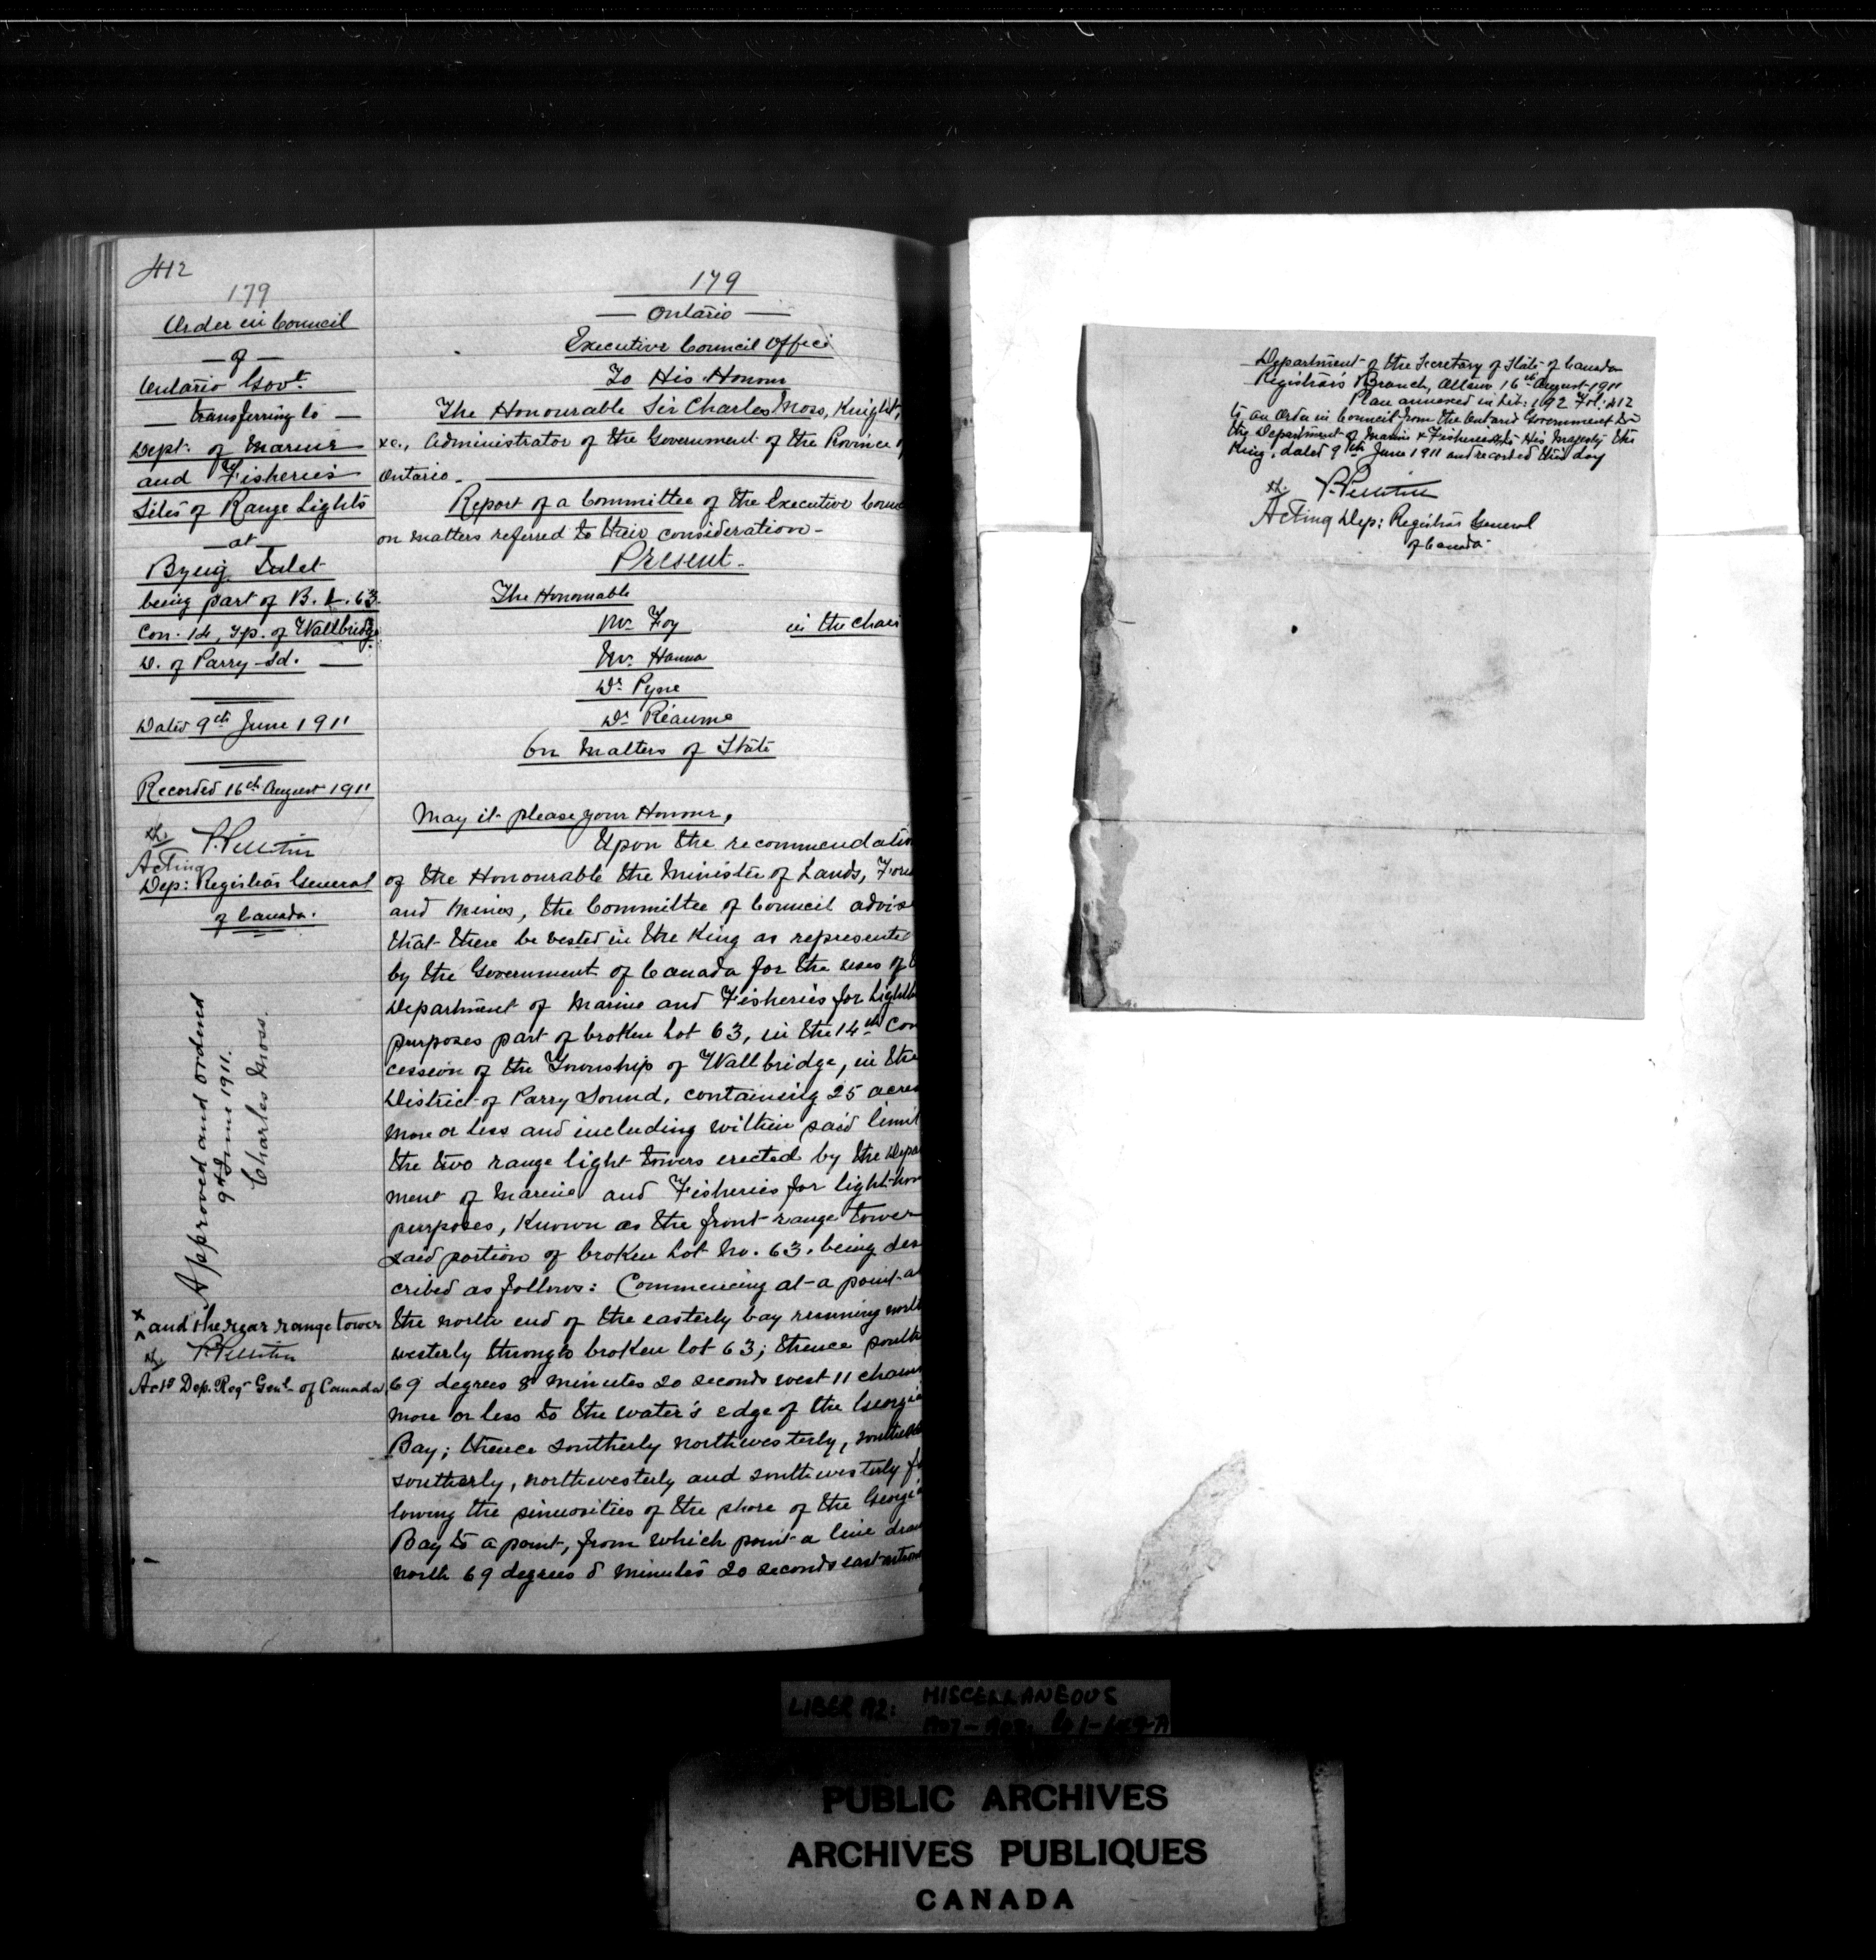 412
179
Order in Council
— of —
Ontario Govt.
— transferring to —
Dept. of Marine
and Fisheries
Sites of Range Lights
— at —
Byng Inlet
being part of B. L. 63.
Con. 14, Tp. of Wallbridge
D. of Parry Sd. —
Dated 9th June 1911
Recorded 16th August 1911
P. Pelletier
Acting
Dep: Registrar General
of Canada.
Approved and ordered
9th June 1911.
Charles Moss.
x and the rear range tower
P. Pelletier
Actg Dep. Regr Genl of Canada
179
— Ontario —
Executive Council Office
To His Honour
The Honourable Sir Charles Moss, Knight,
&c., Administrator of the Government of the Province
Ontario.
Report of a Committee of the Executive
on matters referred to their consideration -
Present -
The Honourable
Mr. Foy in the Chair
Mr. Hanna
Dr. Pyne
Dr. Réaume
On Matters of State
May it please your Honour,
Upon the recommendation
of the Honourable the Minister of Lands,
and Mines, the Committee of Council advise
that there be vested in the King as represented
by the Government of Canada for the uses of
Department of Marine and Fisheries for
purposes part of broken Lot 63, in the 14th Con
cession of the Township of Wallbridge, in the
District of Parry Sound, containing 25 acres
more or less and including within said limit
the two range light towers erected by the Depart
ment of Marine and Fisheries for light-hou
purposes, known as the front range tower
said portion of broken Lot No. 63, being des
cribed as follows: Commencing at a point a
the north end of the easterly bay running north
westerly through broken lot 63; thence south
69 degrees 8 minutes 20 seconds west 11 chains
more or less to the water's edge of the Georgia
Bay; thence southerly northwesterly,
southerly, northwesterly and southwesterly fo
lowing the sinuosities of the shore of the Georgia
Bay to a point, from which point a line draw
north 69 degrees 8 minutes 20 seconds east
Department of the Secretary of State of Canada
Registrar's Branch, Ottawa 16th August 1911
Plan annexed in Lib: 192 Fol: 412
to an Order in Council from the Ontario Government to
the Department of Marine & Fisheries His Majesty the
King, dated 9th June 1911 and recorded this day
P. Pelletier
Acting Dep: Registrar General
of Canada.
LIBER 192: MISCELLANEOUS
PUBLIC ARCHIVES
ARCHIVES PUBLIQUES
CANADA